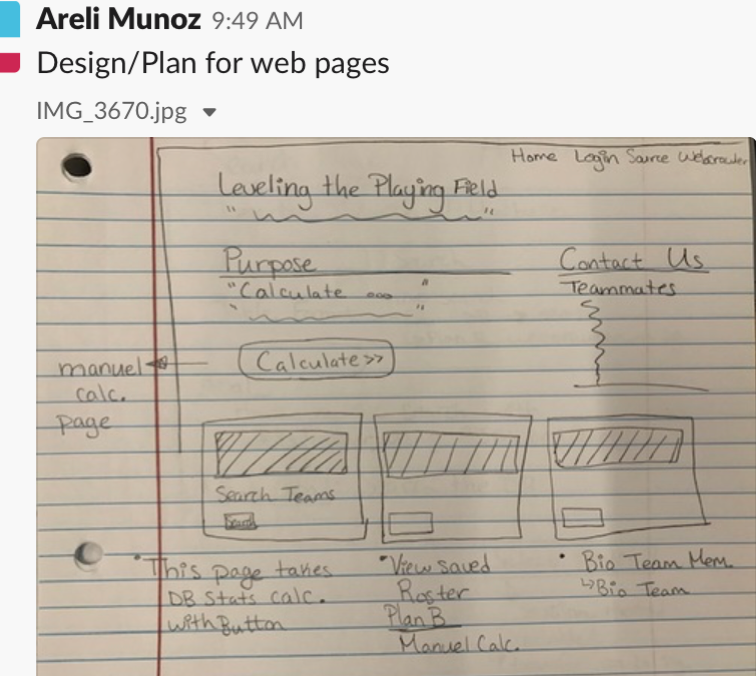 Areli Munoz 9:49 AM
Design/Plan for web pages
IMG_3670.jpg
Home Login Source Webcrawler
Leveling the Playing Field
Purpose
"Calculate ... "
Contact Us
Teammates
Calculate >>
manuel
calc.
page
Search Teams
Search
This page takes
DB Stats calc.
with Button
View saved
Roster
Plan B
Manuel Calc.
Bio Team Mem.
Bio Team